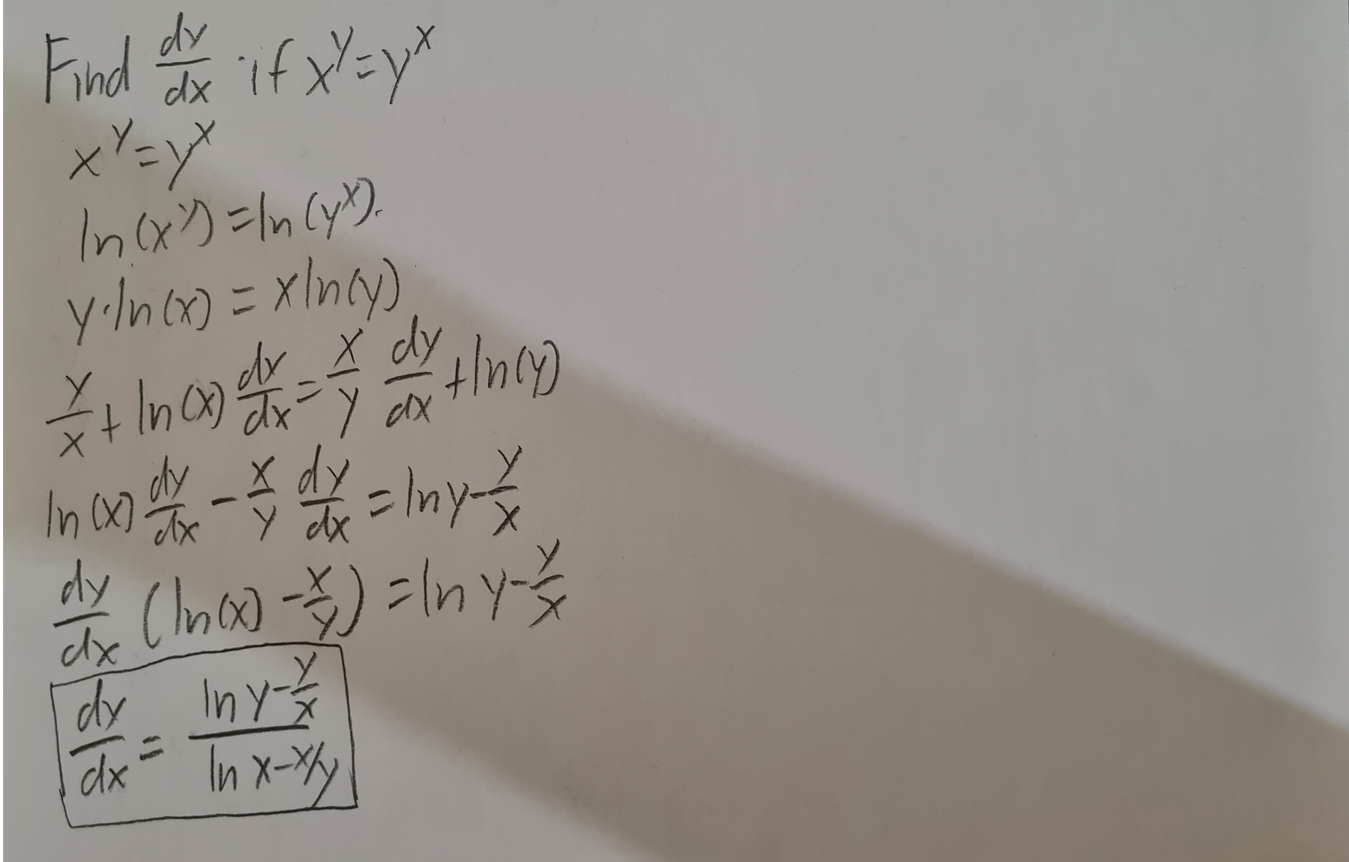 Find dy/dx if x^y=y^x
x^y=y^x
ln(x^y)=ln(y^x).
y·ln(x)=xln(y)
y/x+ln(x)dy/dx=x/y dy/dx+ln(y)
ln(x)dy/dx-x/y dy/dx=lny-y/x
dy/dx(ln(x)-x/y)=ln y-y/x
dy/dx=(ln y-y/x)/(ln x-x/y)